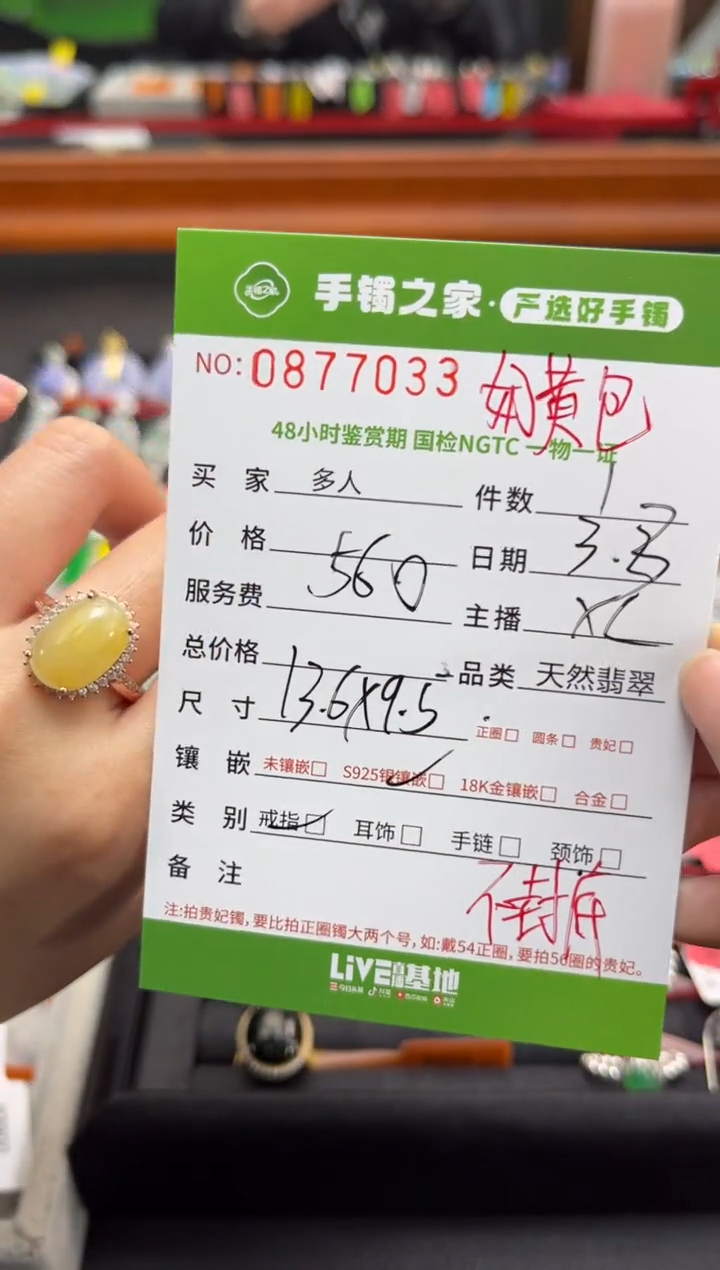 手镯之家·严选好手镯
NO:0877033
黄包
48小时鉴赏期 国检NGTC 一物一证
买家 多人 件数 1
价格 560 日期 3.3
服务费 主播 XL
总价格 品类 天然翡翠
尺寸 13.6X9.5 正圈□ 圆条□ 贵妃□
镶嵌 未镶嵌□ S925银镶嵌□ 18K金镶嵌□ 合金□
类别 戒指□ 耳饰□ 手链□ 颈饰□
备注 不封底
注:拍贵妃镯,要比拍正圈镯大两个号,如:戴54正圈,要拍56圈的贵妃。
LiVE直播基地
今日头条 抖音 西瓜视频 火山